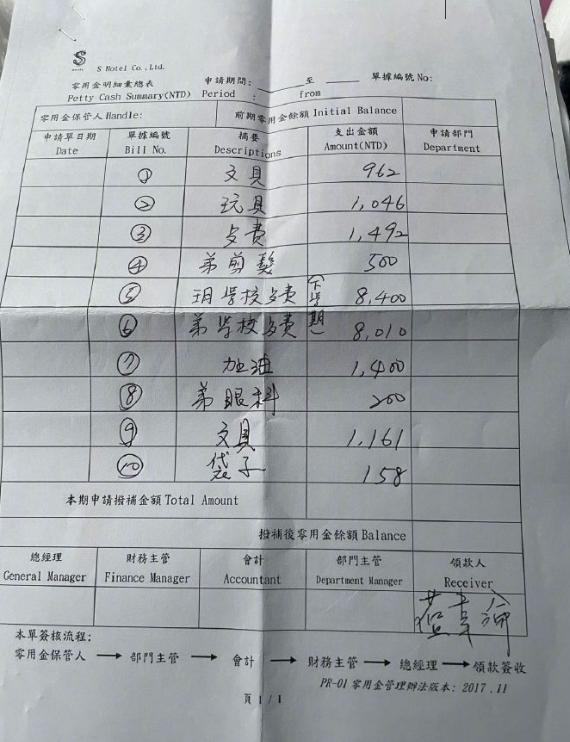 S
S Hotel Co.,Ltd.
零用金明細彙總表 申請期間: 至 單據編號 No:
Petty Cash Summary(NTD) Period : from
零用金保管人 Handle: 前期零用金餘額 Initial Balance
申請單日期 單據編號 摘要 支出金額 申請部門
Date Bill No. Descriptions Amount(NTD) Department
① 文具 962
② 玩具 1,046
③ 歺費 1,492
④ 弟剪髮 500
⑤ 玥學校歺費(下學期) 8,400
⑥ 弟學校歺費 8,010
⑦ 加油 1,400
⑧ 弟眼科 200
⑨ 文具 1,161
⑩ 袋子 158
本期申請撥補金額 Total Amount
撥補後零用金餘額 Balance
總經理 財務主管 會計 部門主管 領款人
General Manager Finance Manager Accountant Department Manager Receiver
本單簽核流程:
零用金保管人 → 部門主管 → 會計 → 財務主管 → 總經理 → 領款簽收
PR-01 零用金管理辦法版本: 2017.11
頁 1 / 1